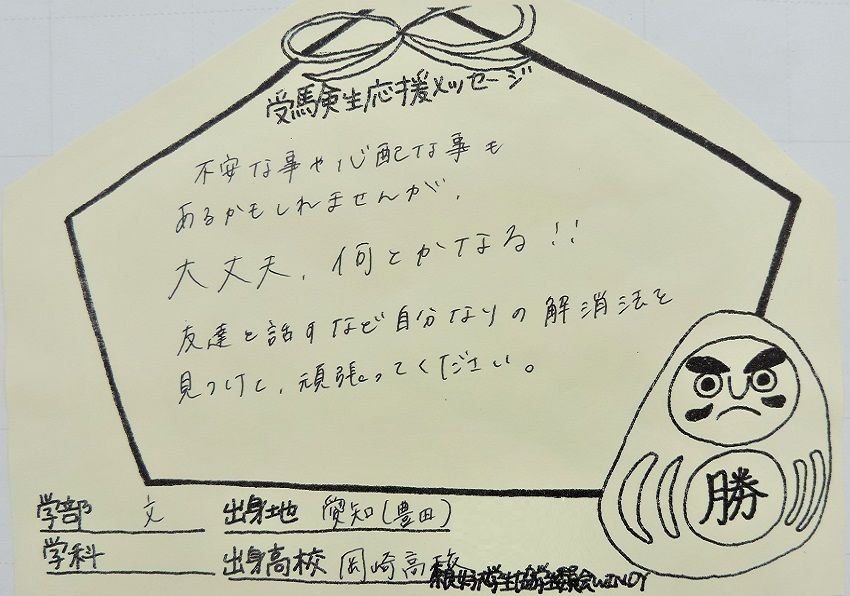 受験生応援メッセージ
不安な事や心配な事も
あるかもしれませんが、
大丈夫、何とかなる!!
友達と話すなど自分なりの解消法を
見つけて、頑張ってください。
勝
学部 文 出身地 愛知(豊田)
学科 出身高校 岡崎高校
委員会WINDY